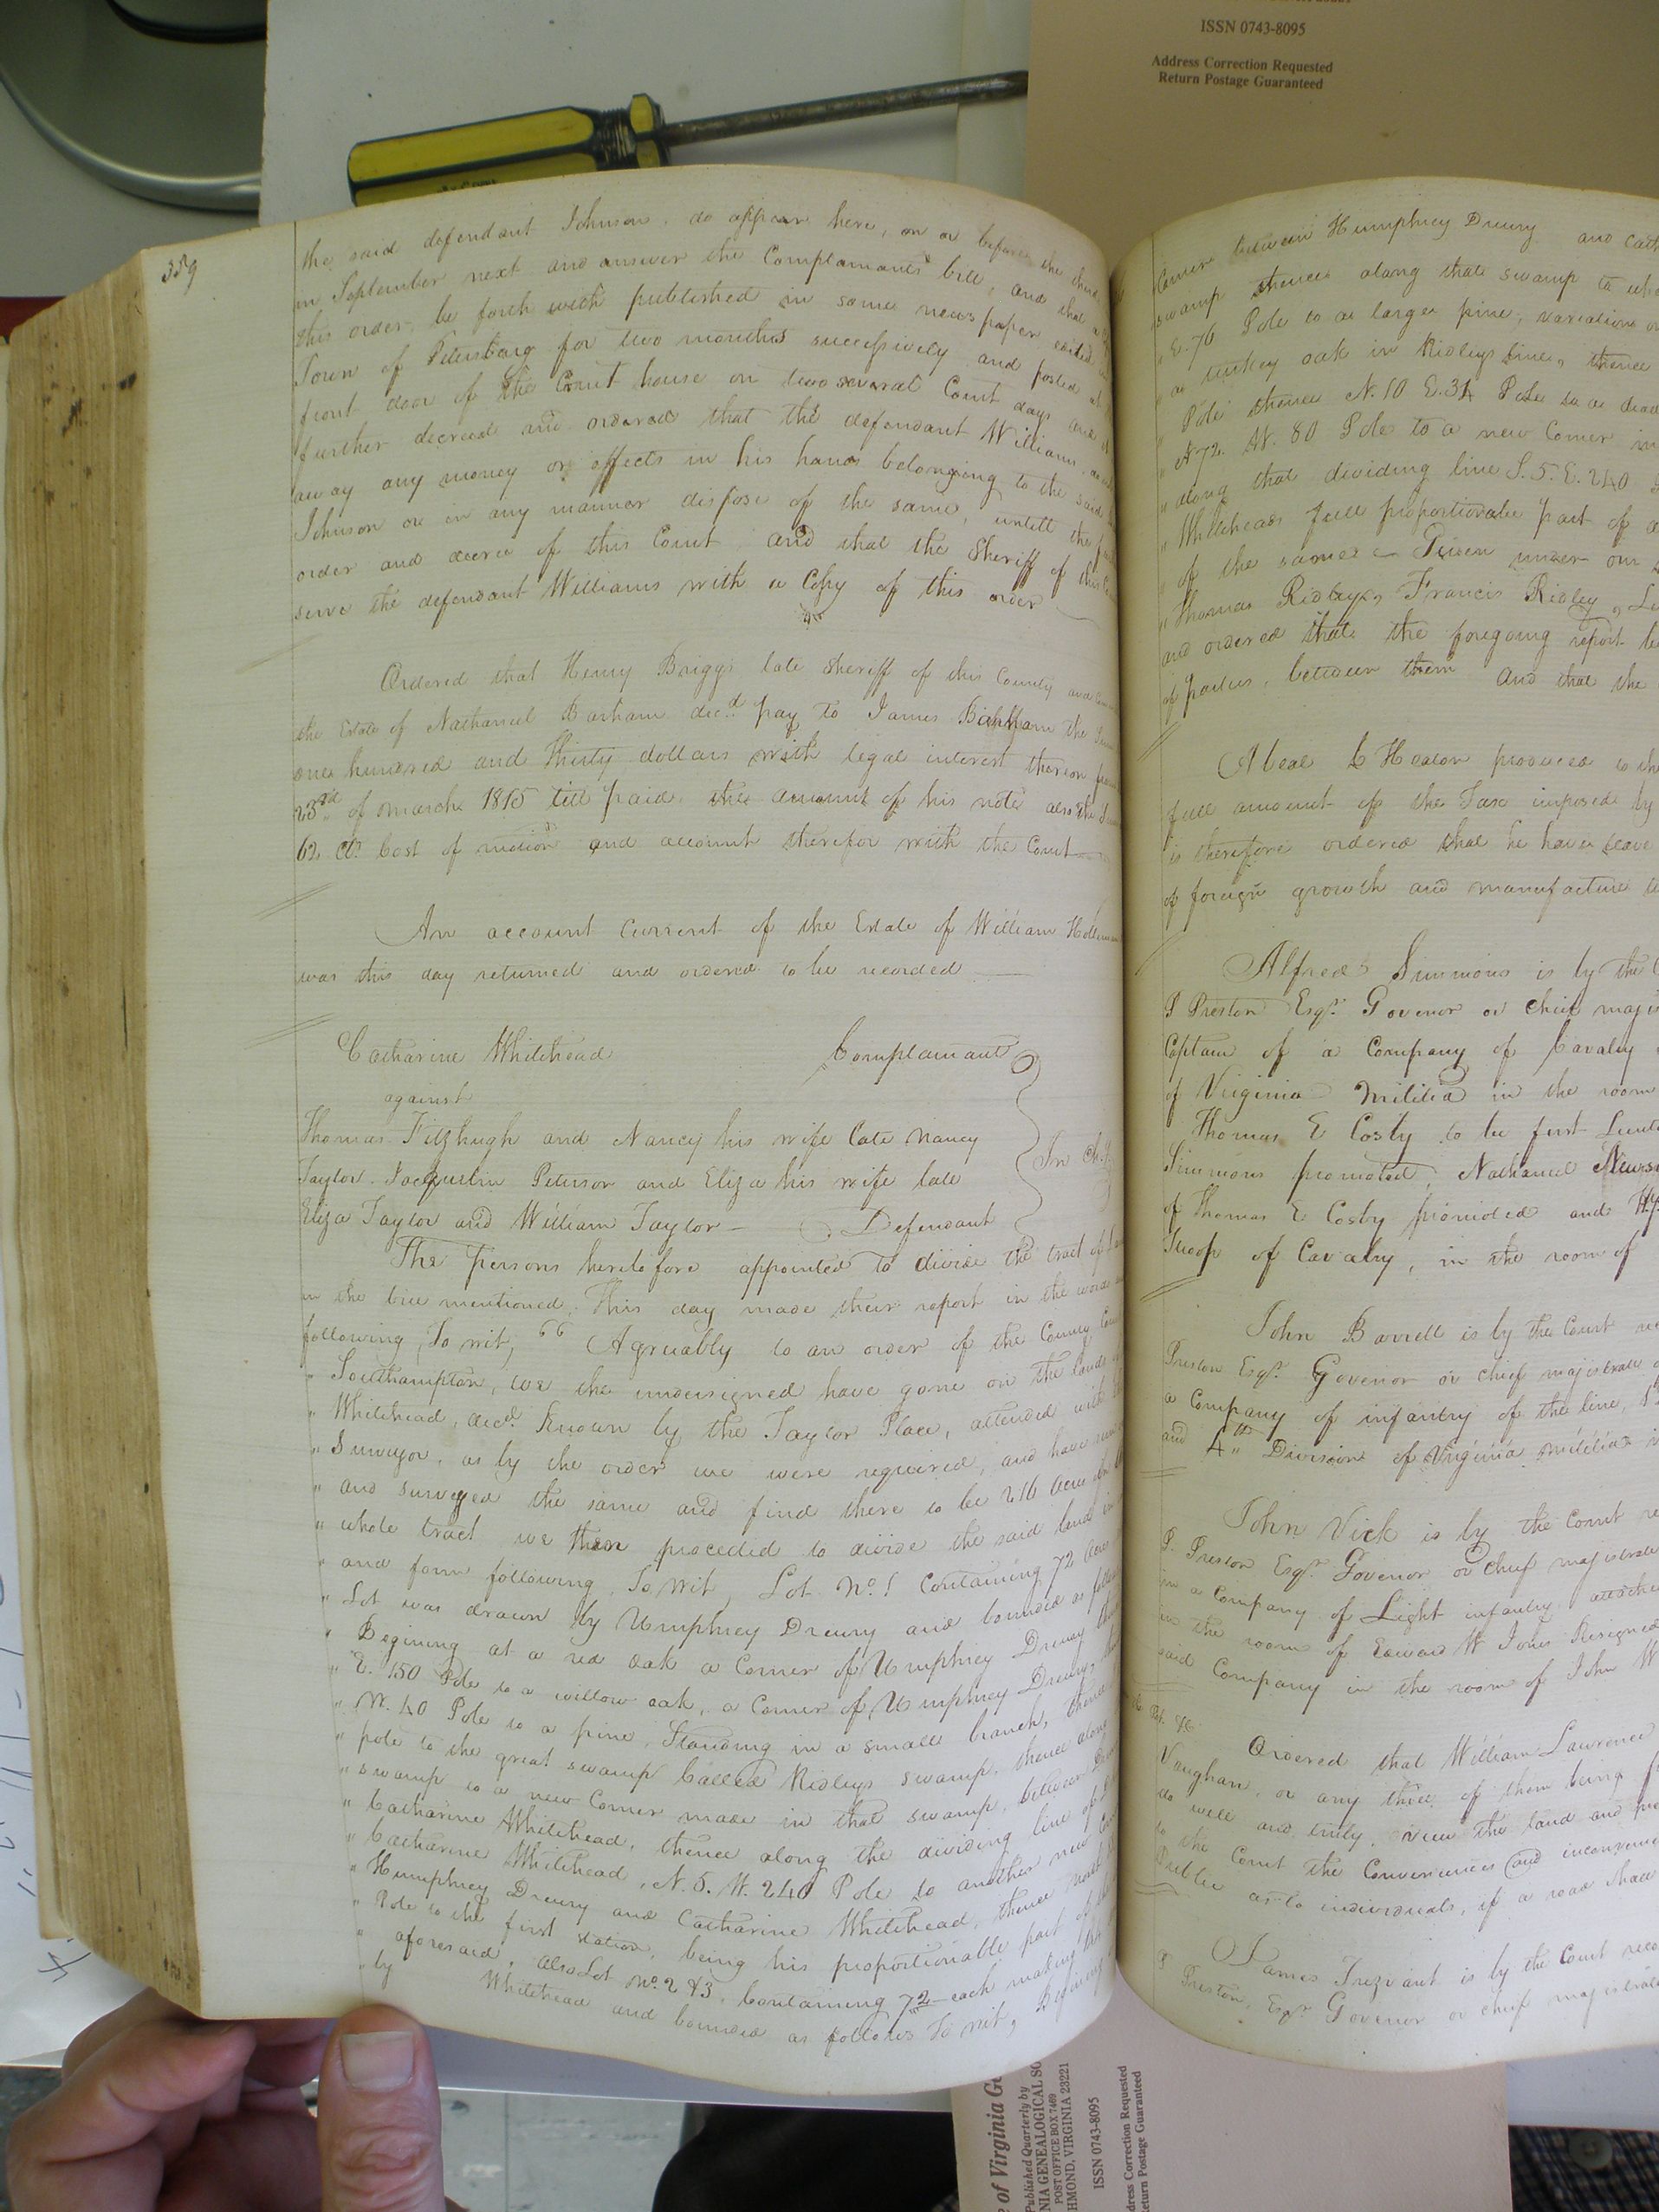 ISSN 0743-8095
Address Correction Requested
Return Postage Guaranteed
359
the said defendant Johnson, do appear here, on or before the third
in September next and answer the Complainants bill, and that a
this order, be forth with published in some news paper edited in
Town of Petersburg for two months successively and posted at
front door of the Court house on two several Court days and
further decreed and ordered that the defendant Williams
away any money or effects in his hands belonging to the said
Johnson or in any manner dispose of the same, untill the
order and decree of this Court and that the Sheriff of this
serve the defendant Williams with a Copy of this order
Ordered that Henry Briggs late Sheriff of this County and
the Estate of Nathaniel Barham decd. pay to James Barham the
one hundred and thirty dollars with legal interest thereon from
23rd of march 1815 till paid the amount of his note also the
62 Cts Cost of motion and account therefor with the Court
An account Current of the Estate of William
was this day returned and ordered to be recorded
Catharine Whitehead Complainant
against
Thomas Fitzhugh and Nancy his wife late Nancy
Taylor. Jacquelin Peterson and Eliza his wife late In Chy
Eliza Taylor and William Taylor — Defendant
The persons heretofore appointed to divide the tract of
in the bill mentioned, This day made their report in the words
following, To wit, " Agreeably to an order of the County
" Southampton, we the undersigned have gone on the lands
" Whitehead, decd. known by the Taylor Place, attended with
" Surveyor, as by the order we were required, and have
" and surveyed the same and find there to be 216 acres
" whole tract we then proceded to divide the said land in
" and form following, To wit, Lot No. 1 Containing 72 acres
" Lot was drawn by Umphrey Drewry and bounded as
" Begining at a red oak a Corner of Umphrey Drewry
" E. 150 Pole to a willow oak, a Corner of Umphrey Drewry,
" W. 40 Pole to a pine, Standing in a small branch, thence
" pole to the great swamp Called Ridleys swamp, thence along
" swamp to a new Corner made in that swamp, between
" Catharine Whitehead, thence along the dividing line of
" Catharine Whitehead, N. 5. W. 240 Pole to another new
" Humphrey Drewry and Catharine Whitehead, thence
" Pole to the first station, being his proportionable part of
" aforesaid, also Lot No. 2 &3. Containing 72 each making
" by Whitehead and bounded as follows To wit, Begining
Corner between Humphrey Drewry and
swamp thence along that swamp to
" E. 76 Pole to a large pine, variation
" a turkey oak in Ridleys line, thence
" Pole thence N. 10 E. 34 Pole to a
" N 72 W. 80 Pole to a new Corner in
" along that dividing line S. 5. E. 240
" Whiteheads full proportionable part of
" of the same — Given under our
" Thomas Ridley, Francis Ridley,
and ordered that the foregoing report
of parties, between them And that the
produced to the
full amount of the Tax imposed by
is therefore ordered that he have leave
of foreign growth and manufacture
Alfred Simmons is by the
P Preston Esqr. Govenor or chief
Captain of a Company of Cavalry
of Virginia Militia in the room
Thomas E Cosby to be first
Simmons promoted, Nathaniel
of Thomas E Cosby promoted and
Troop of Cavalry, in the room of
John Barrell is by the Court
Preston Esqr. Govenor or chief majistrate
a Company of infantry of the line,
and 4th Division of Virginia militia
John Vick is by the Court
P. Preston Esqr. Govenor or chief majistrate
in a Company of Light infantry
in the room of Edward W Jones Resigned
said Company in the room of John W
Ordered that William Lawrence
Vaughan, or any three of them being
do well and truly, view the land and
to the Court the Conveniences and
Public as to individuals, if a road shall
James Trezvant is by the Court
P Preston, Esqr Govenor or chief majistrate
of Virginia
Published Quarterly by
GENEALOGICAL
POST OFFICE BOX 7469
VIRGINIA 23221
ISSN 0743-8095
Address Correction Requested
Return Postage Guaranteed